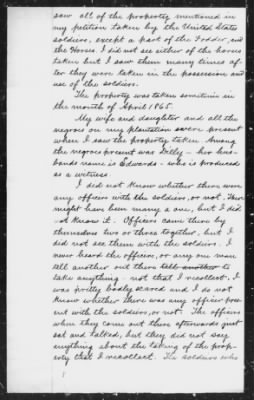 saw all of the property mentioned in
my petition taken by the United States
soldiers, except a part of the fodder, and
the Horses. I did not see either of the horses
taken but I saw them many times af-
ter they were taken in the possession and
use of the soldiers.
The property was taken sometime in
the month of April 1865.
My wife and daughter and all the
negroes on my plantation were present
when I saw the property taken. Among
the negroes present was Dilly - her hus-
bands name is Edwards - who is produced
as a witness.
I did not know whether there were
any officers with the soldiers, or not. There
might have been many a one, but I did
not know it. Officers came there by
themselves two or three together, but I
did not see them with the soldiers. I
never heard the officers, or any one man
tell another out there tell another to
take anything, not that I recollect. I
was pretty badly scared and I do not
know whether there was any officer pres-
ent with the soldiers, or not. The officers
when they came out there afterwards just
sat and talked, but they did not say
anything about the taking of the prop-
erty that I recollect. The soldiers who